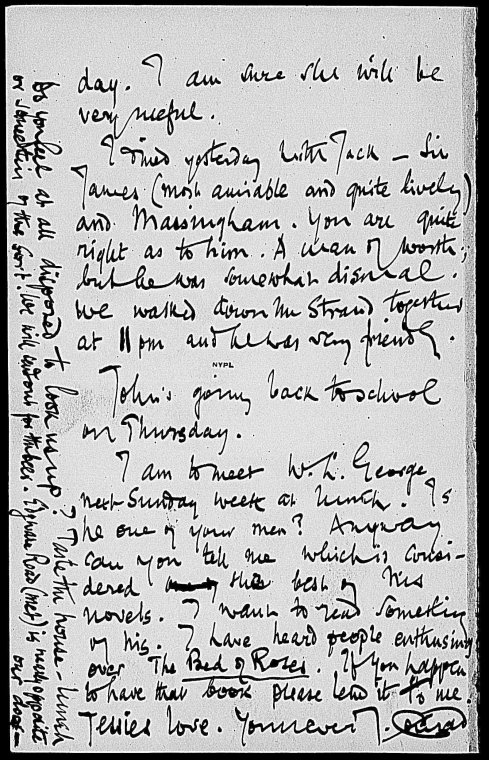 day. I am sure she will be
very useful.
I dined yesterday with Jack — Sir
James (most amiable and quite lively)
and Massingham. You are quite
right as to him. A man of worth;
but he was somewhat dismal.
We walked down the Strand together
at 11 pm and he was very friendly.
NYPL
John's going back to school
on Thursday.
I am to meet W. L. George
next Sunday week at lunch. Is
he one of your men? Anyway
can you tell me which is consi-
dered the best of his
novels. I want to read something
of his. I have heard people enthusing
over The Bed of Roses. If you happen
to have that book please lend it to me.
Jessies love. Yours ever J. Conrad
Do you feel at all disposed to look us up? Taste the house - lunch
or something of the sort. We will for Edgware Road (Met) is nearly opposite
our door —